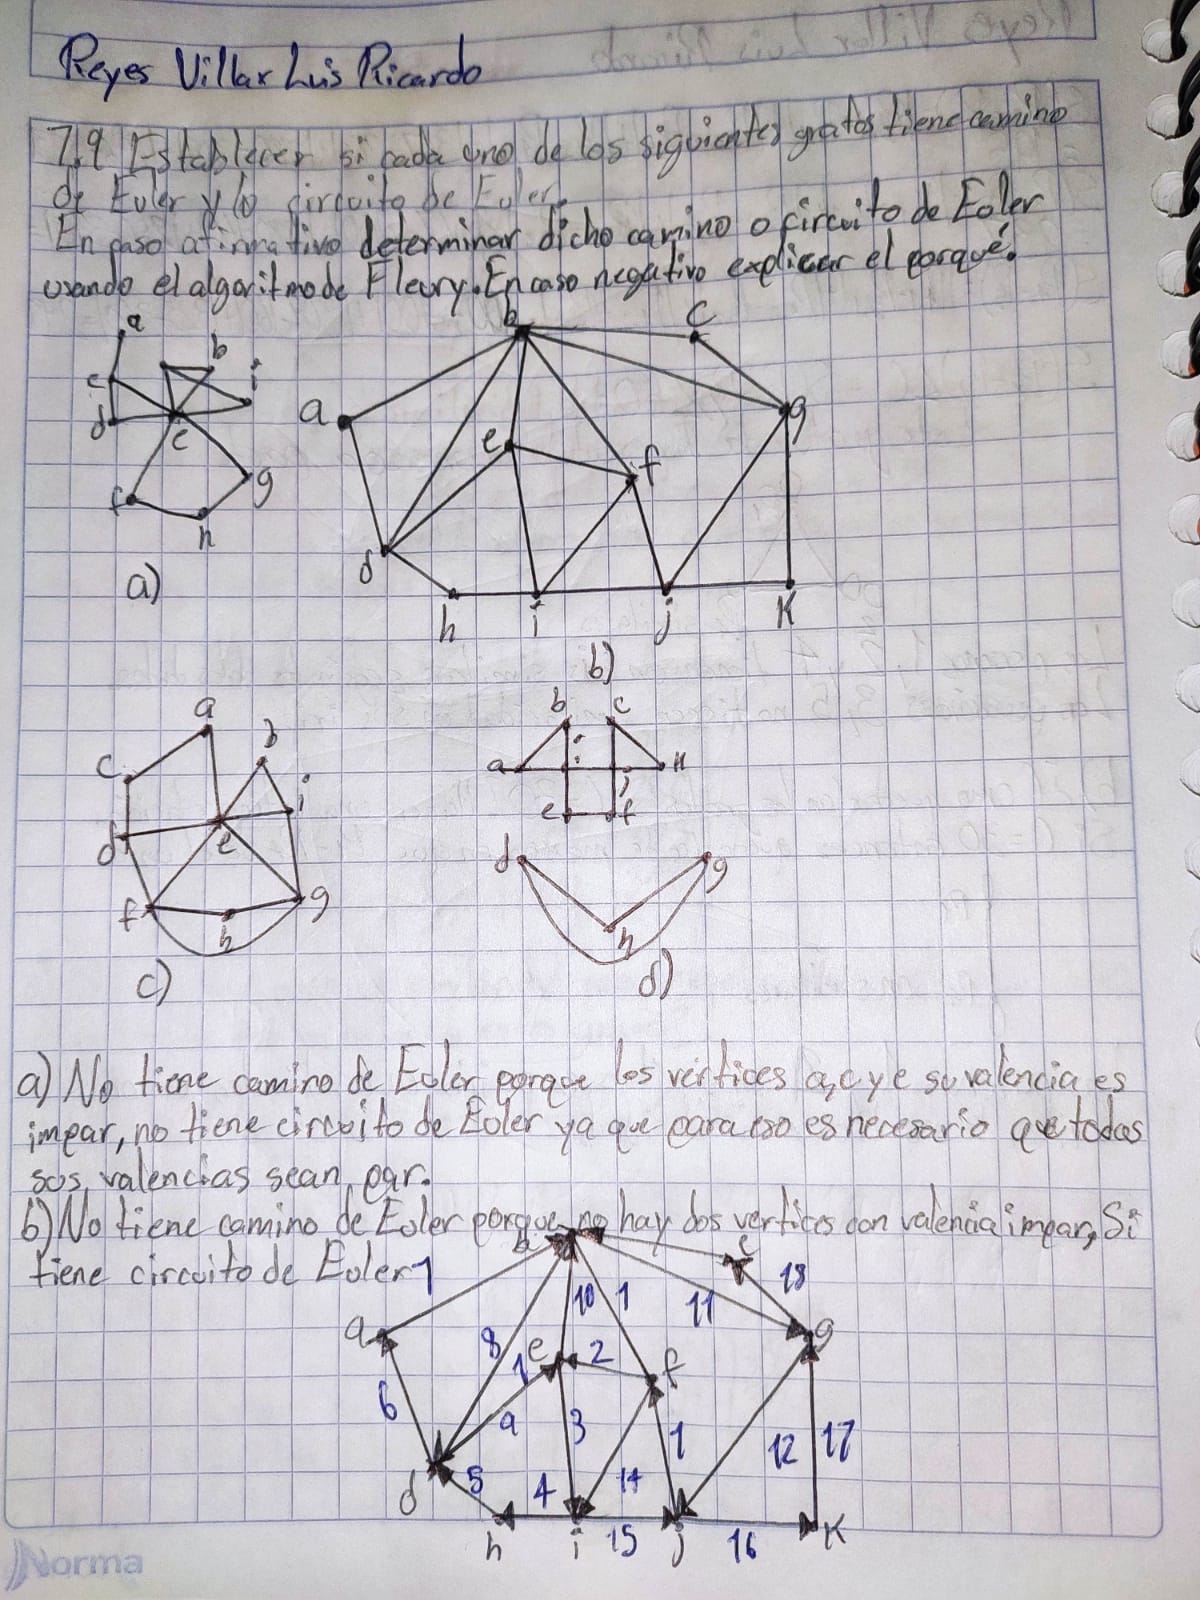 Reyes Villar Luis Ricardo
7.9 Establecer si cada uno de los siguientes grafos tiene camino
de Euler y/o circuito de Euler.
En caso afirmativo determinar dicho camino o circuito de Euler
usando el algoritmo de Fleury. En caso negativo explicar el porqué.
a
b
c
i
d
e
f
g
h
a)
b
c
a
g
e
f
d
h
i
j
K
b)
a
b
c
i
d
e
f
g
h
c)
b
c
a
i
j
K
e
f
d
g
h
d)
a) No tiene camino de Euler porque los vértices a, c y e su valencia es
impar, no tiene circuito de Euler ya que para eso es necesario que todas
sus valencias sean par.
b) No tiene camino de Euler porque no hay dos vertices con valencia impar, Si
tiene circuito de Euler
7
b
c
18
10
1
11
a
g
8
e
2
f
1
6
9
3
1
12
17
d
5
4
14
h
i
15
j
16
K
Norma